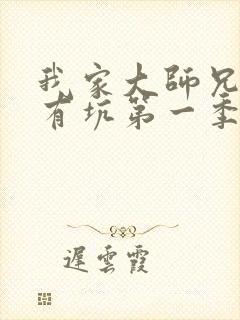 我家大師兄
有坑第一季
遲雲霞